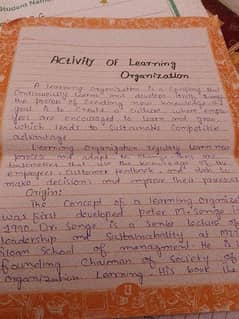 Student Name
Activity Of Learning
Organization
A learning organization is a
Continuously learn and develop
the process of new knowledge
goal is to create a culture where emplo
yees are encouraged to learn and grow
which leads to Sustainable Competitive
advantage
Learning Organization regularly learn new
process and adapt to
businesses that use the knowledge of the
employees, Customer feedback, and data to
make decisions and improve their processes
Origin:
The Concept of a learning Organiza
was first developed Peter M. Senge
1990. Dr. Senge is a senior lecture of
leadership and Sustainability at MIT
Sloan School of managment He is
founding Chairman of Society of
Organization Learning. His book the